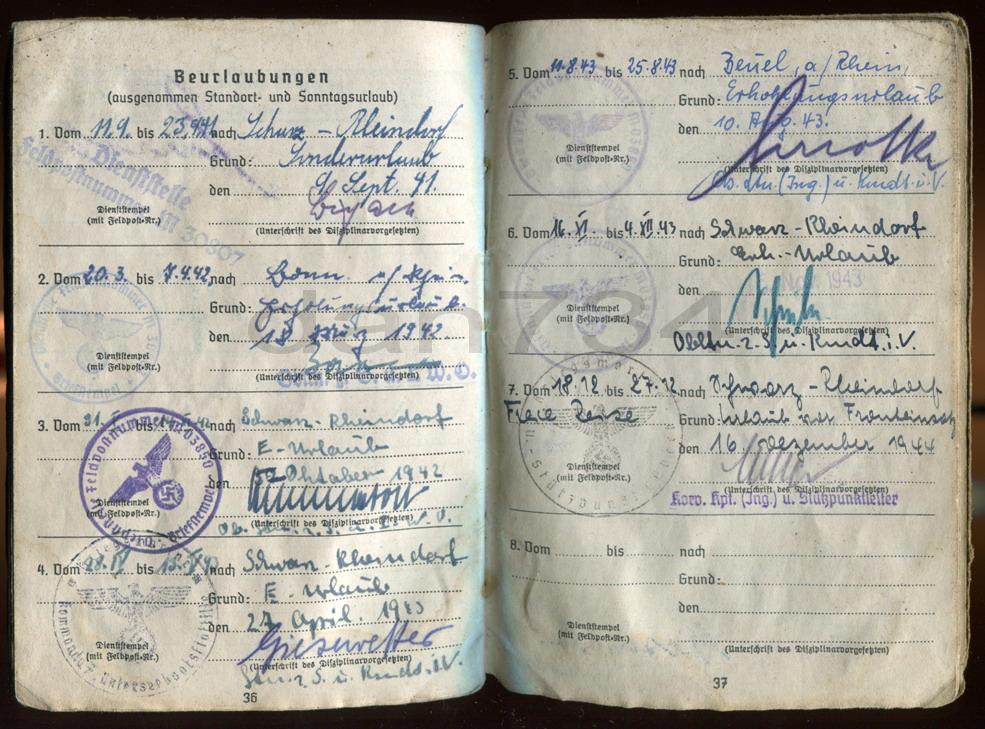 Beurlaubungen
(ausgenommen Standort- und Sonntagsurlaub)
1. Vom 11.9. bis 23.9.41 nach Schwarz-Rheindorf
Grund: Sonderurlaub
den 9. Sept. 41.
Dienststelle
Feldpostnummer M 30307
Dienststempel
(mit Feldpost-Nr.)
(Unterschrift des Disziplinarvorgesetzten)
2. Vom 20.3. bis 7.4.42 nach Bonn a/Rhein
Grund: Erholungsurlaub.
den 18. März 1942
Dienststempel
(mit Feldpost-Nr.)
(Unterschrift des Disziplinarvorgesetzten)
3. Vom bis nach Schwarz-Rheindorf
Grund: E-Urlaub
den Oktober 1942
Feldpostnummer M 03850
Briefstempel
Dienststempel
(mit Feldpost-Nr.)
(Unterschrift des Disziplinarvorgesetzten)
4. Vom 28.IV bis nach Schwarz-Rheindorf
Grund: E-Urlaub
den 27. April 1943
Giesewetter
Dienststempel
(mit Feldpost-Nr.)
(Unterschrift des Disziplinarvorgesetzten)
Ltn. z. S. u. Kmdt. i.V.
36
5. Vom 11.8.43 bis 25.8.43 nach Beuel, a/Rhein,
Grund: Erholungsurlaub
den 10. Aug. 43.
Dienststempel
(mit Feldpost-Nr.)
(Unterschrift des Disziplinarvorgesetzten)
Ob. Ltn. (Ing.) u. Kmdt. i.V.
6. Vom 16.XI. bis 4.XII.43 nach Schwarz-Rheindorf
Grund: Erh.-Urlaub
den NOV. 1943
Dienststempel
(mit Feldpost-Nr.)
(Unterschrift des Disziplinarvorgesetzten)
Obltn. z. S. u. Kmdt. i.V.
7. Vom 18.12 bis 27.12 nach Schwarz-Rheindorf
Freie Reise Grund: Urlaub vor Fronteinsatz
den 16. Dezember 1944
Dienststempel
(mit Feldpost-Nr.)
(Unterschrift des Disziplinarvorgesetzten)
Korv. Kpt. (Ing.) u. Stützpunktleiter
8. Vom bis nach
Grund:
den
Dienststempel
(mit Feldpost-Nr.)
(Unterschrift des Disziplinarvorgesetzten)
37